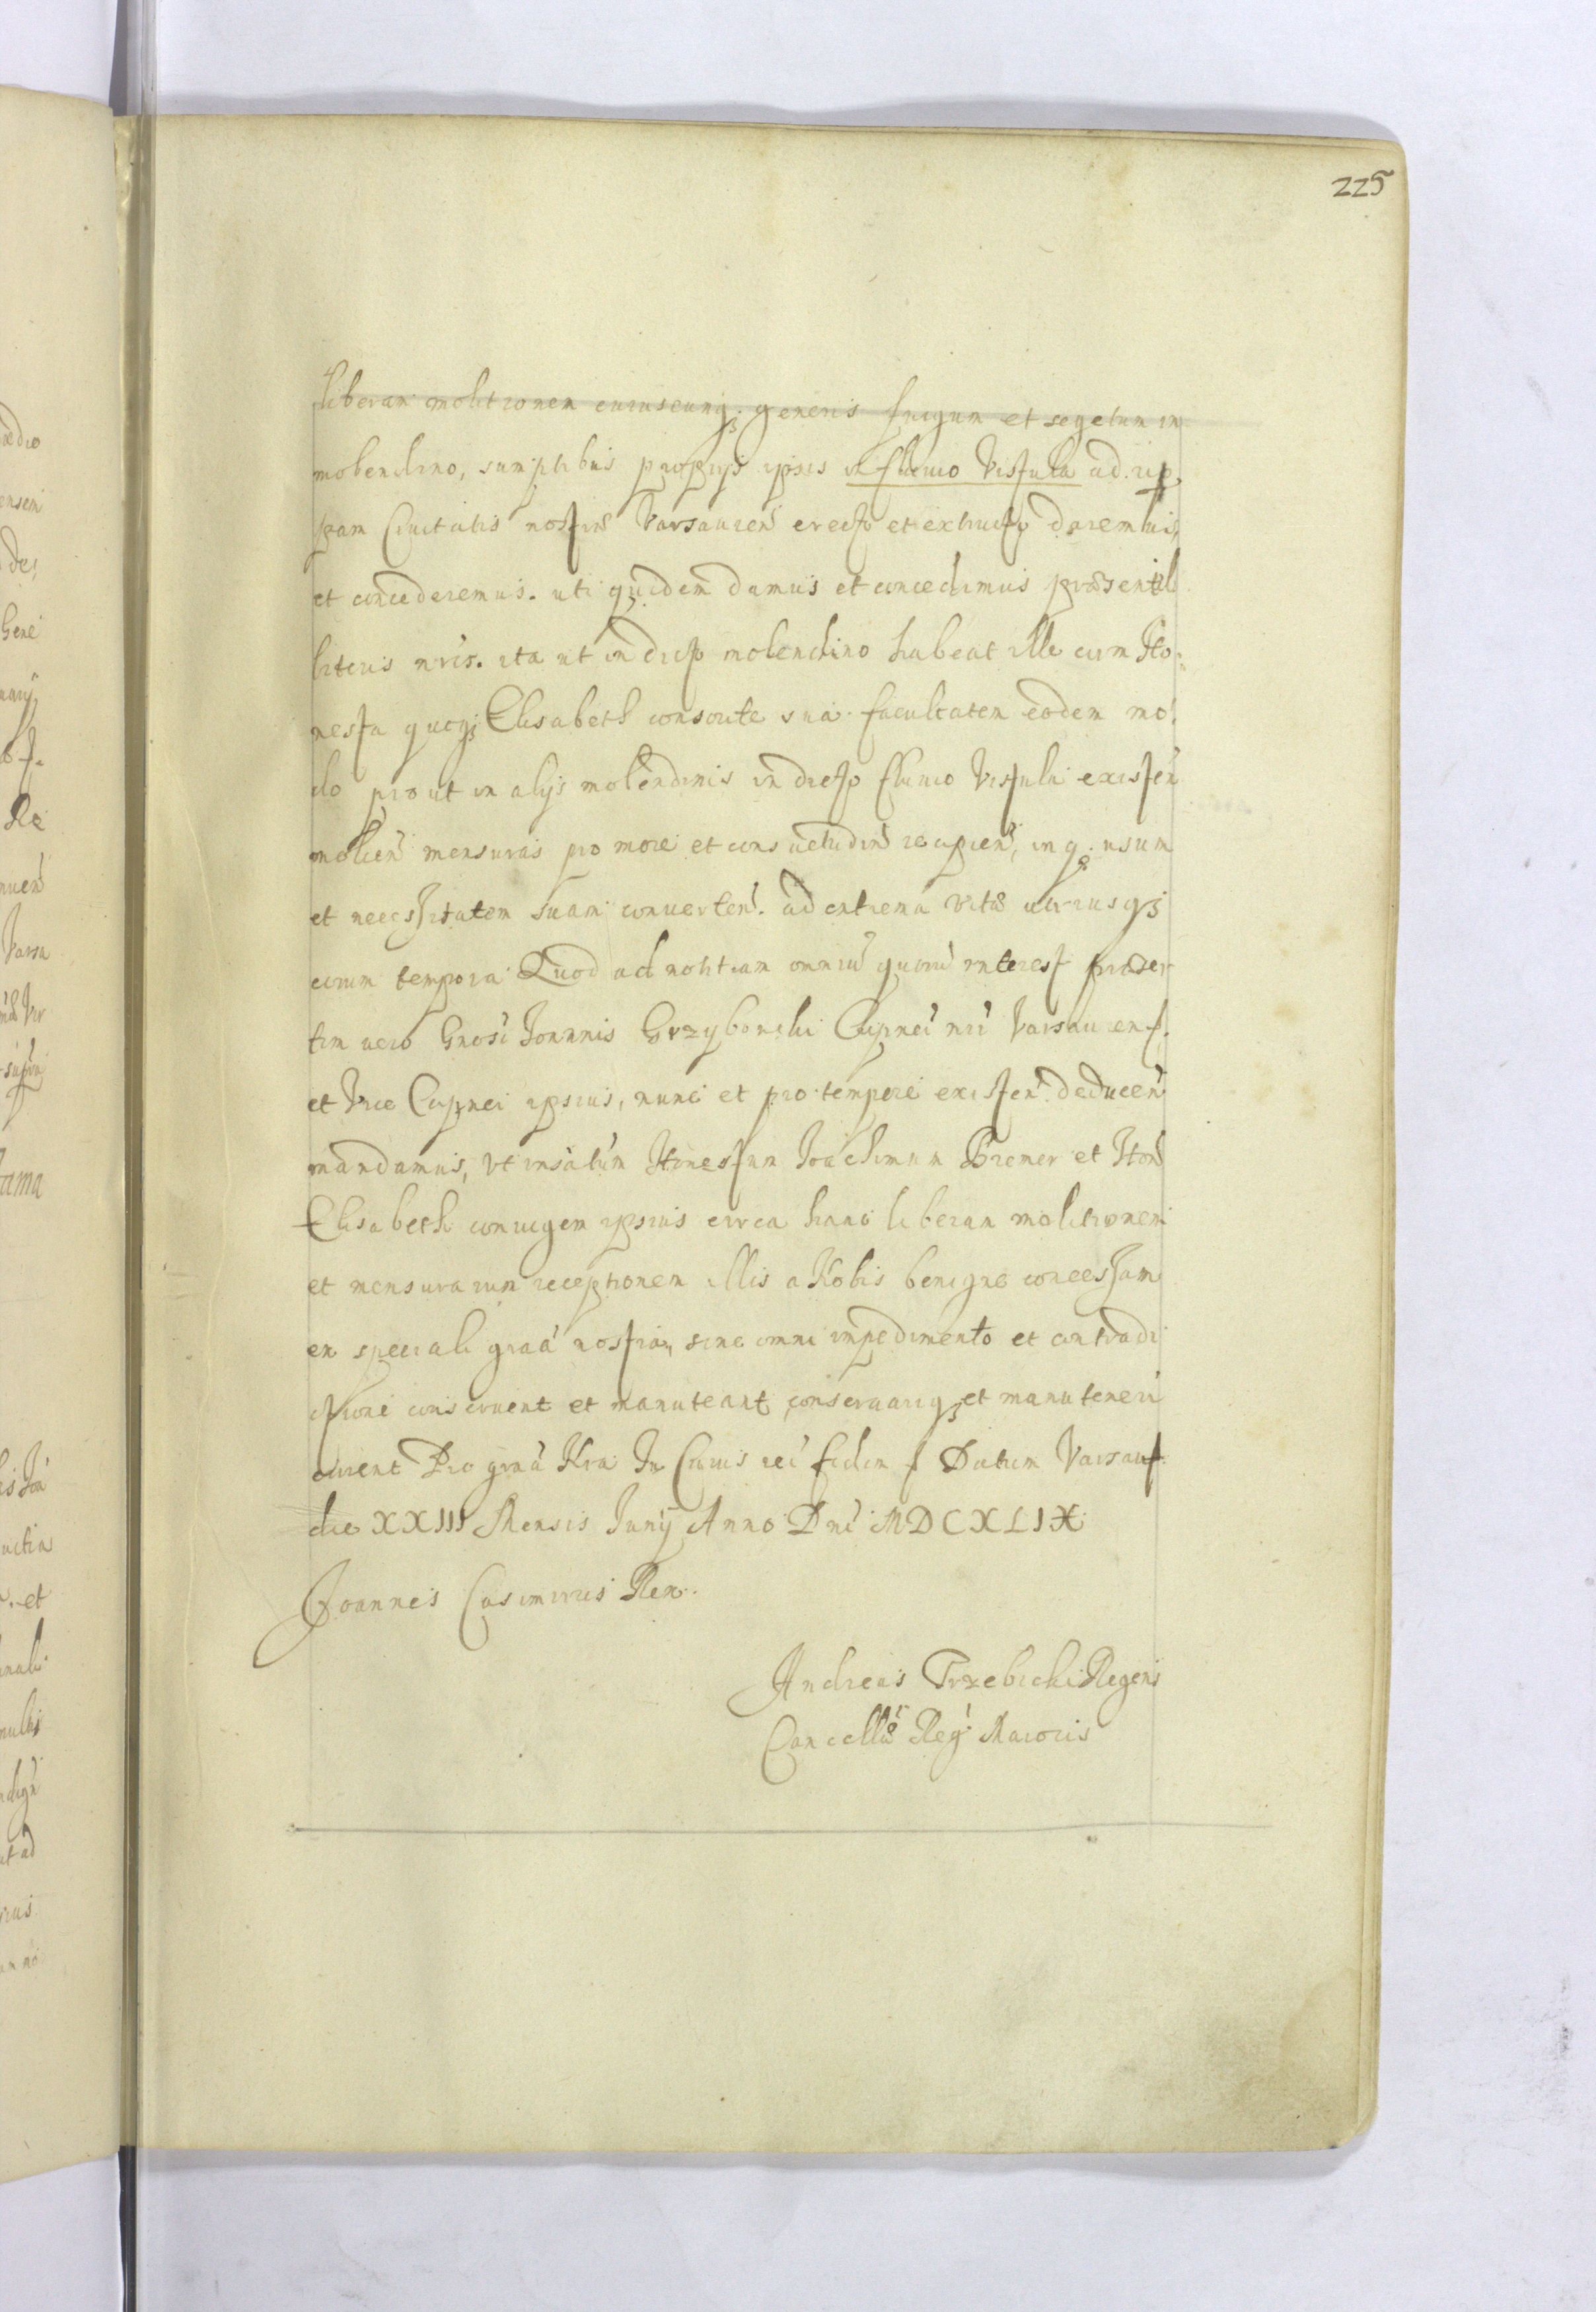 225
liberam molitionem cuiuscunq₃ generis frugum et segetum in
molendino, sumptibus proprijs ipsis in fluuio Vistula ad rip,
pam Ciuitatis nostræ Varsauien̄ erecto et extructo daremus,
et concederemus. uti quidem damus et concedimus præsentib
literis nr̄is. ita ut in dicto molendino habeat ille cum Ho:
nesta quoq₃ Elisabeth consorte sua facultatem eodem mo:
do prout in alijs molendinis in dicto fluuio Vistula existen̄
molien̄ mensuras pro more et consuetudin̄ recipien̄, in q. usum
et necessitatem suam conuerten̄. ad extrema vitæ utriusq₃
eorum tempora Quod ad notitiam omniū quorū interest præser
tim vero Gnosi Joannis Grzybowski Capnei nri Varsauien̄.
et Vice Capnei ipsius, nunc et pro tempore existen̄. deducen̄
mandamus, vt Honestum Joachimum Bremer et Hon̄
Elisabeth coniugem ipsius circa hanc liberam molitionem
et mensurarum receptionem illis a Nobis benigne concessam
ex speciali graā nostra, sine omni impedimento et contradi
ctione conseruent et manuteant, conseruariq₃ et manuteneri
curent Pro grnā Nra In Cuius rei fidem Datum Varsau
die XXIII Mensis Junij Anno Dni MDCXLIX
Joannes Casimirus Rex.
Andreas Trzebicki Regens
Cancellæ Reg Maioris